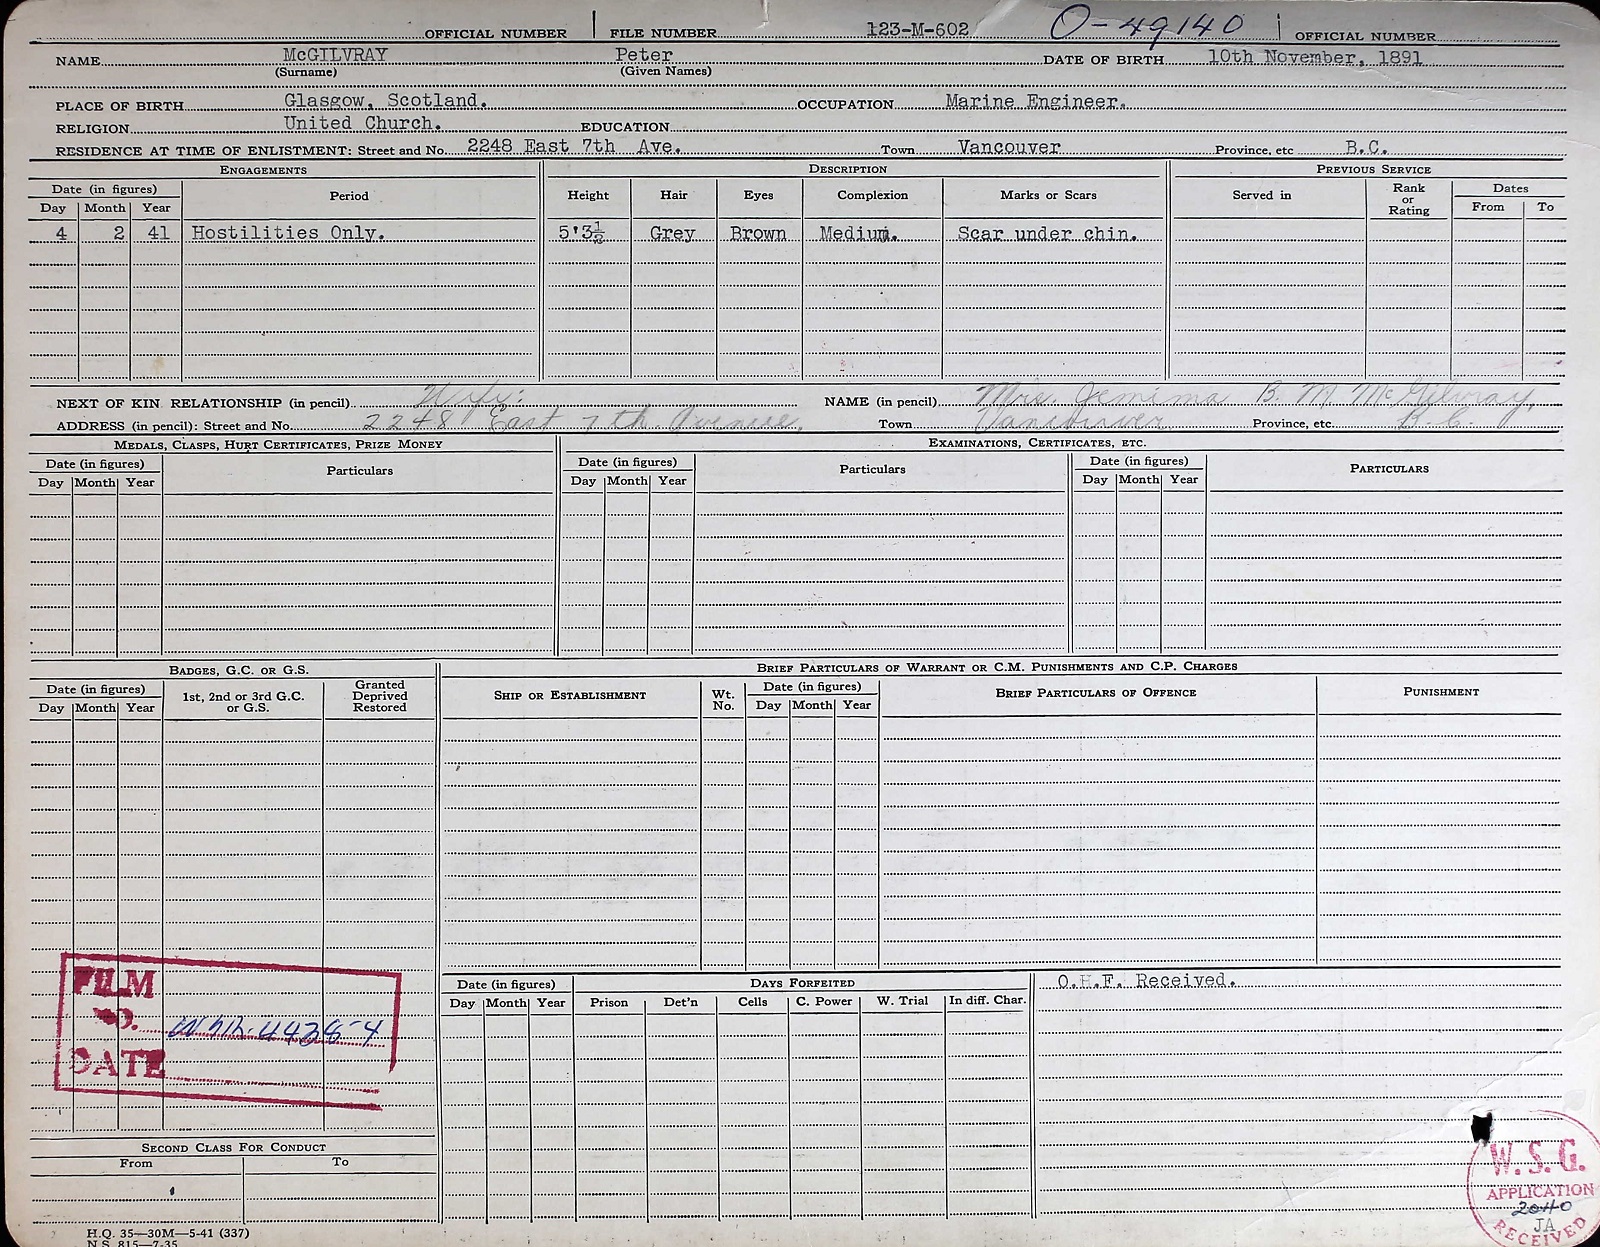 OFFICIAL NUMBER FILE NUMBER 123-M-602 O-49140 OFFICIAL NUMBER
NAME McGILVRAY Peter DATE OF BIRTH 10th November, 1891
(Surname) (Given Names)
PLACE OF BIRTH Glasgow, Scotland. OCCUPATION Marine Engineer.
RELIGION United Church. EDUCATION
RESIDENCE AT TIME OF ENLISTMENT: Street and No. 2248 East 7th Ave. Town Vancouver Province, etc B.C.
ENGAGEMENTS DESCRIPTION PREVIOUS SERVICE
Date (in figures) Period Height Hair Eyes Complexion Marks or Scars Served in Rank or Rating Dates
Day Month Year From To
4 2 41 Hostilities Only. 5'3½ Grey Brown Medium. Scar under chin.
NEXT OF KIN RELATIONSHIP (in pencil) Wife: NAME (in pencil) Mrs. Jemima B. M McGilvray,
ADDRESS (in pencil): Street and No. 2248 East 7th Avenue, Town Vancouver Province, etc. B.C.
MEDALS, CLASPS, HURT CERTIFICATES, PRIZE MONEY EXAMINATIONS, CERTIFICATES, ETC.
Date (in figures) Particulars Date (in figures) Particulars Date (in figures) PARTICULARS
Day Month Year Day Month Year Day Month Year
BADGES, G.C. OR G.S. BRIEF PARTICULARS OF WARRANT OR C.M. PUNISHMENTS AND C.P. CHARGES
Date (in figures) 1st, 2nd or 3rd G.C. or G.S. Granted Deprived Restored SHIP OR ESTABLISHMENT Wt. No. Date (in figures) BRIEF PARTICULARS OF OFFENCE PUNISHMENT
Day Month Year Day Month Year
FILM
NO. 4428-4
DATE
Date (in figures) DAYS FORFEITED O.H.F. Received.
Day Month Year Prison Det'n Cells C. Power W. Trial In diff. Char.
SECOND CLASS FOR CONDUCT
From To
W.S.G.
APPLICATION
2040
JA
RECEIVED
H.Q. 35—30M—5-41 (337)
N.S. 815—7-35